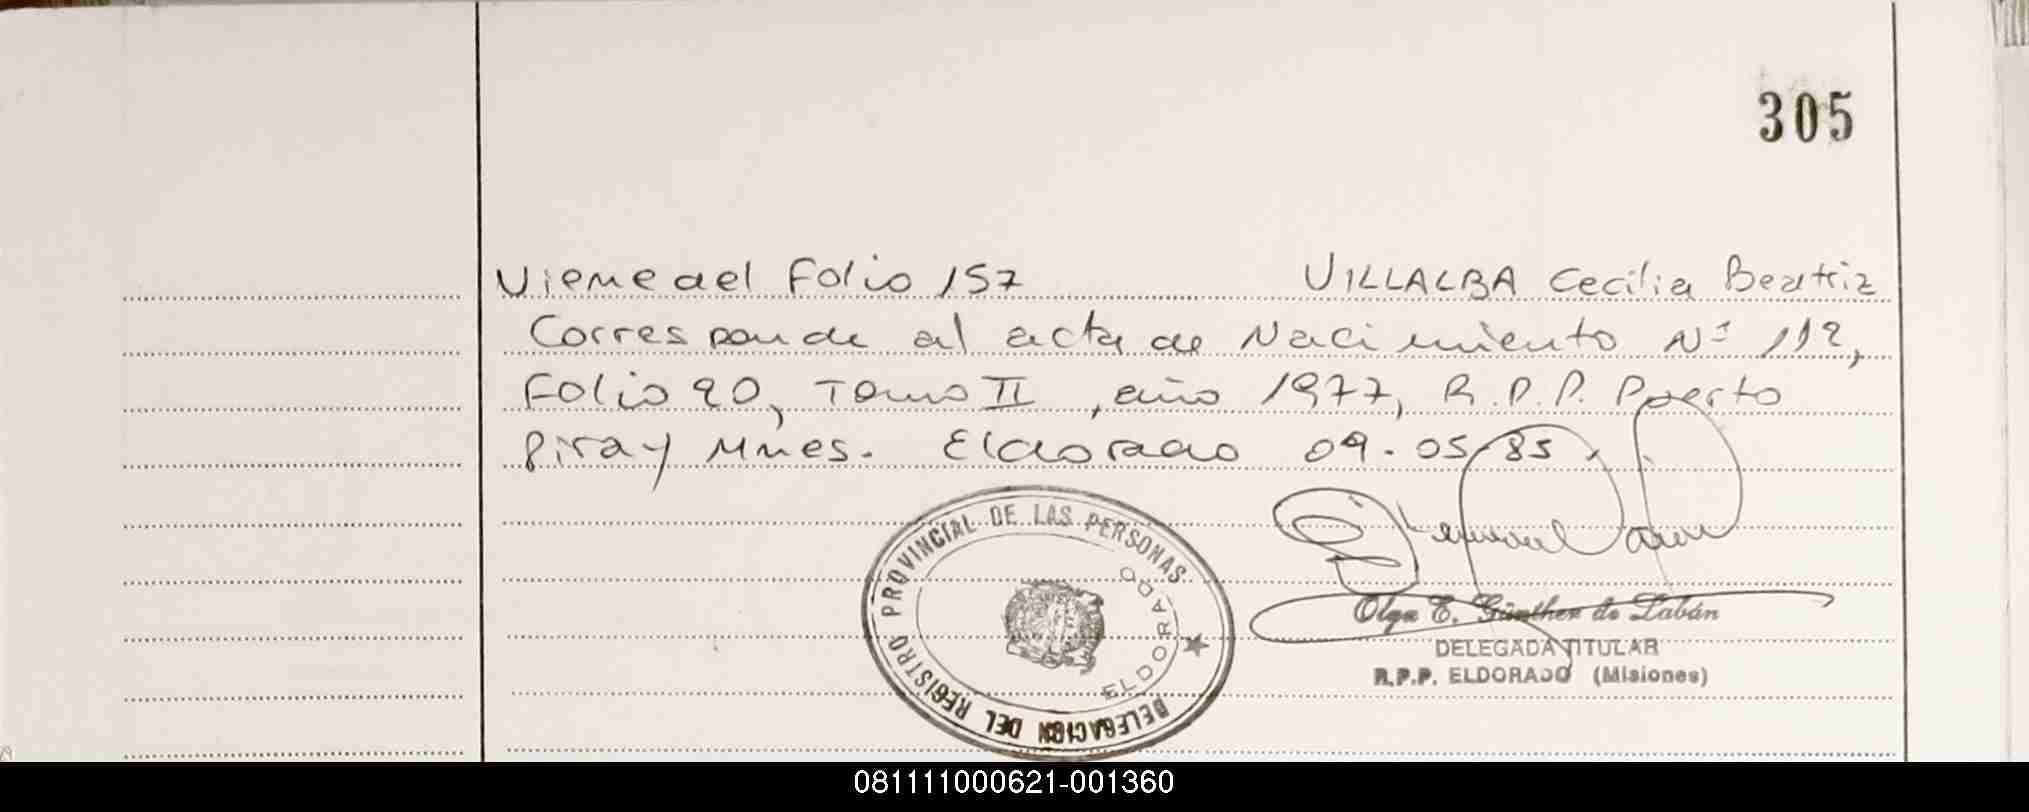 305
Viene del Folio 157 VILLALBA Cecilia Beatriz
Corresponde al acta de Nacimiento Nº 112,
Folio 90, Tomo II, año 1977, R.P.P. Puerto
Piray Mnes. Eldorado 09.05.85.
DELEGACION DEL REGISTRO PROVINCIAL DE LAS PERSONAS
ELDORADO
Olga E. Günther de Labán
DELEGADA TITULAR
R.P.P. ELDORADO (Misiones)
081111000621-001360